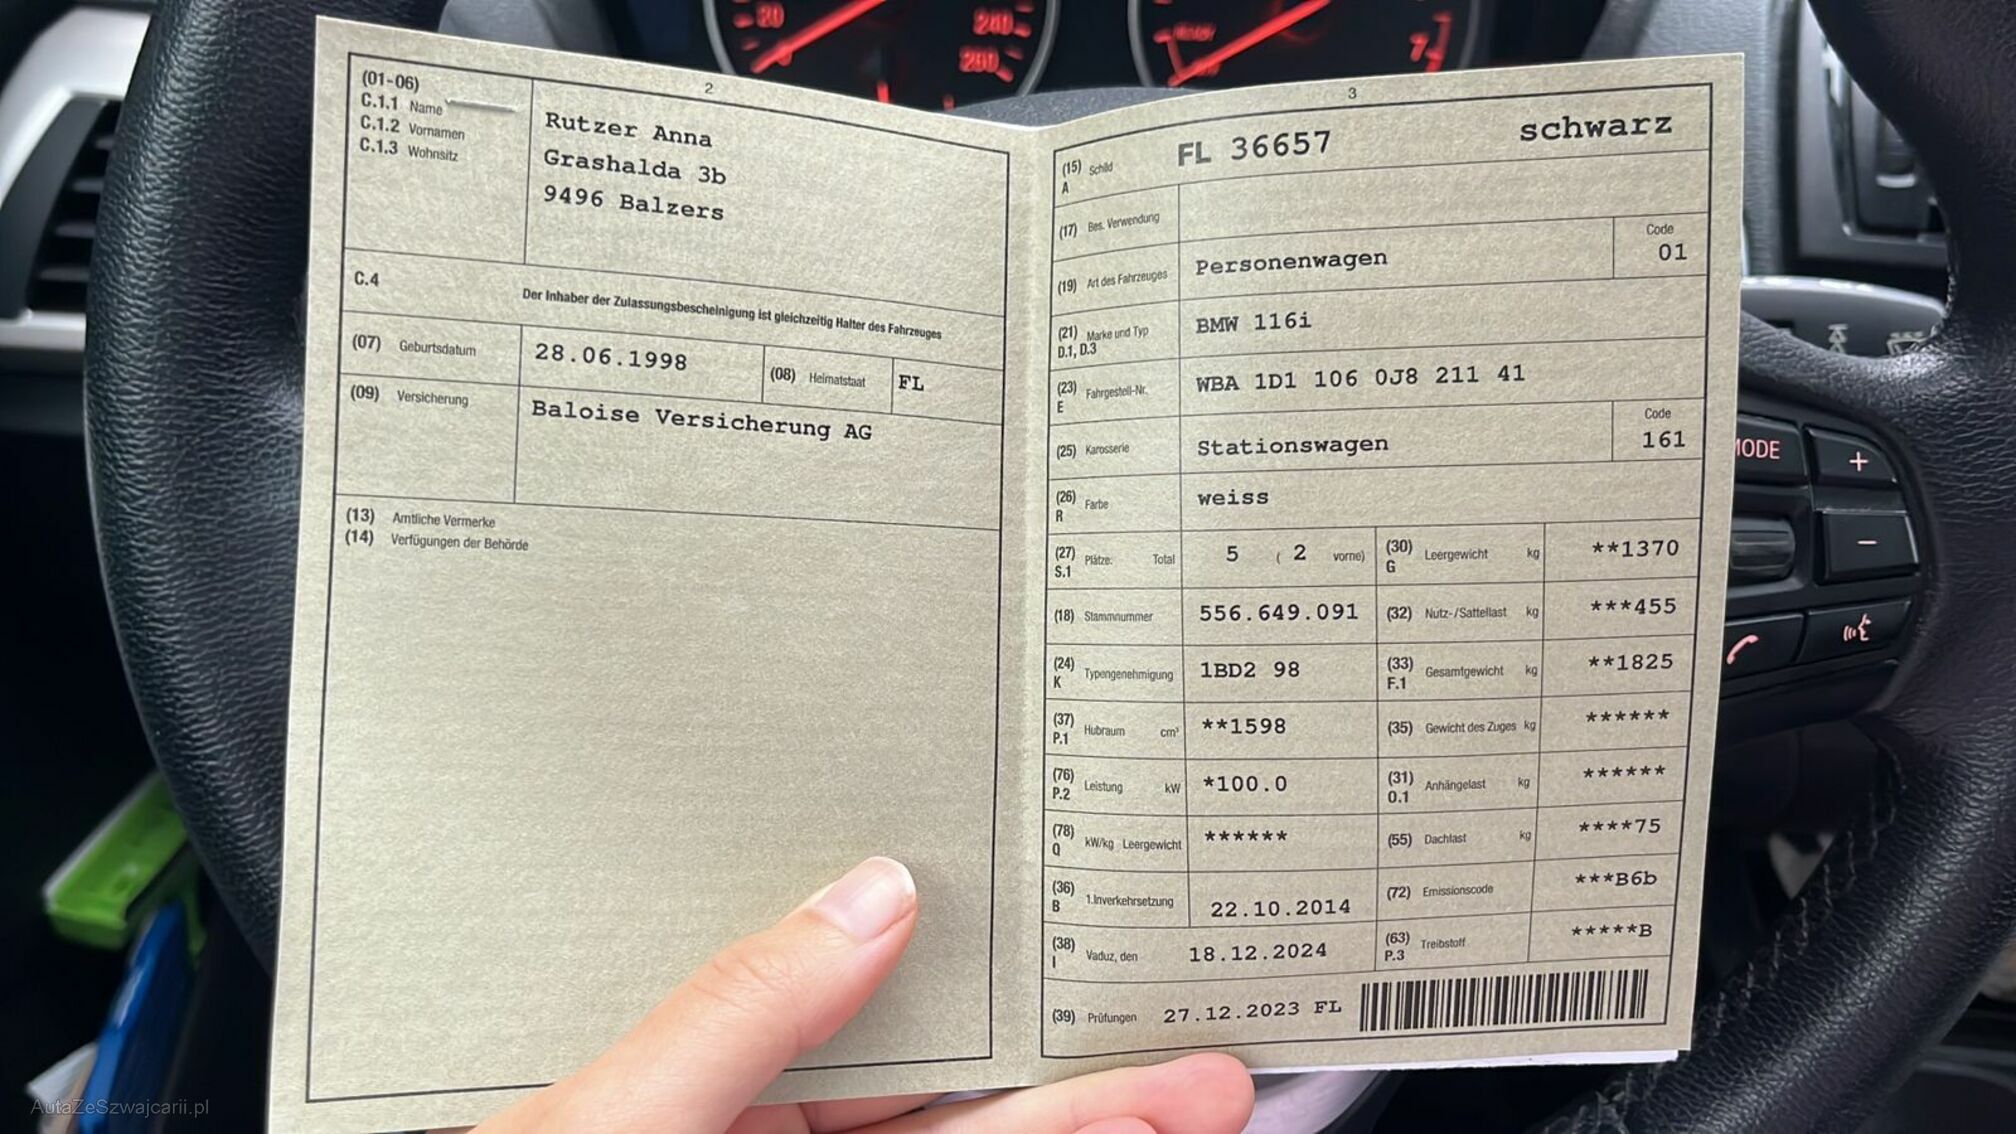 80
240
260
READY
7
2
(01-06)
C.1.1 Name
C.1.2 Vornamen
C.1.3 Wohnsitz
Rutzer Anna
Grashalda 3b
9496 Balzers
C.4
Der Inhaber der Zulassungsbescheinigung ist gleichzeitig Halter des Fahrzeuges
(07) Geburtsdatum 28.06.1998 (08) Heimatstaat FL
(09) Versicherung Baloise Versicherung AG
(13) Amtliche Vermerke
(14) Verfügungen der Behörde
3
(15) Schild A FL 36657 schwarz
(17) Bes. Verwendung
(19) Art des Fahrzeuges Personenwagen Code 01
(21) Marke und Typ D.1, D.3 BMW 116i
(23) Fahrgestell-Nr. E WBA 1D1 106 0J8 211 41
(25) Karosserie Stationswagen Code 161
(26) Farbe R weiss
(27) Plätze: Total S.1 5 ( 2 vorne) (30) Leergewicht kg G **1370
(18) Stammnummer 556.649.091 (32) Nutz-/Sattellast kg ***455
(24) Typengenehmigung K 1BD2 98 (33) Gesamtgewicht kg F.1 **1825
(37) Hubraum cm³ P.1 **1598 (35) Gewicht des Zuges kg ******
(76) Leistung kW P.2 *100.0 (31) Anhängelast kg O.1 ******
(78) kW/kg Leergewicht Q ****** (55) Dachlast kg ****75
(36) 1.Inverkehrsetzung B 22.10.2014 (72) Emissionscode ***B6b
(38) Vaduz, den I 18.12.2024 (63) Treibstoff P.3 *****B
(39) Prüfungen 27.12.2023 FL
MODE
+
−
AutaZeSzwajcarii.pl